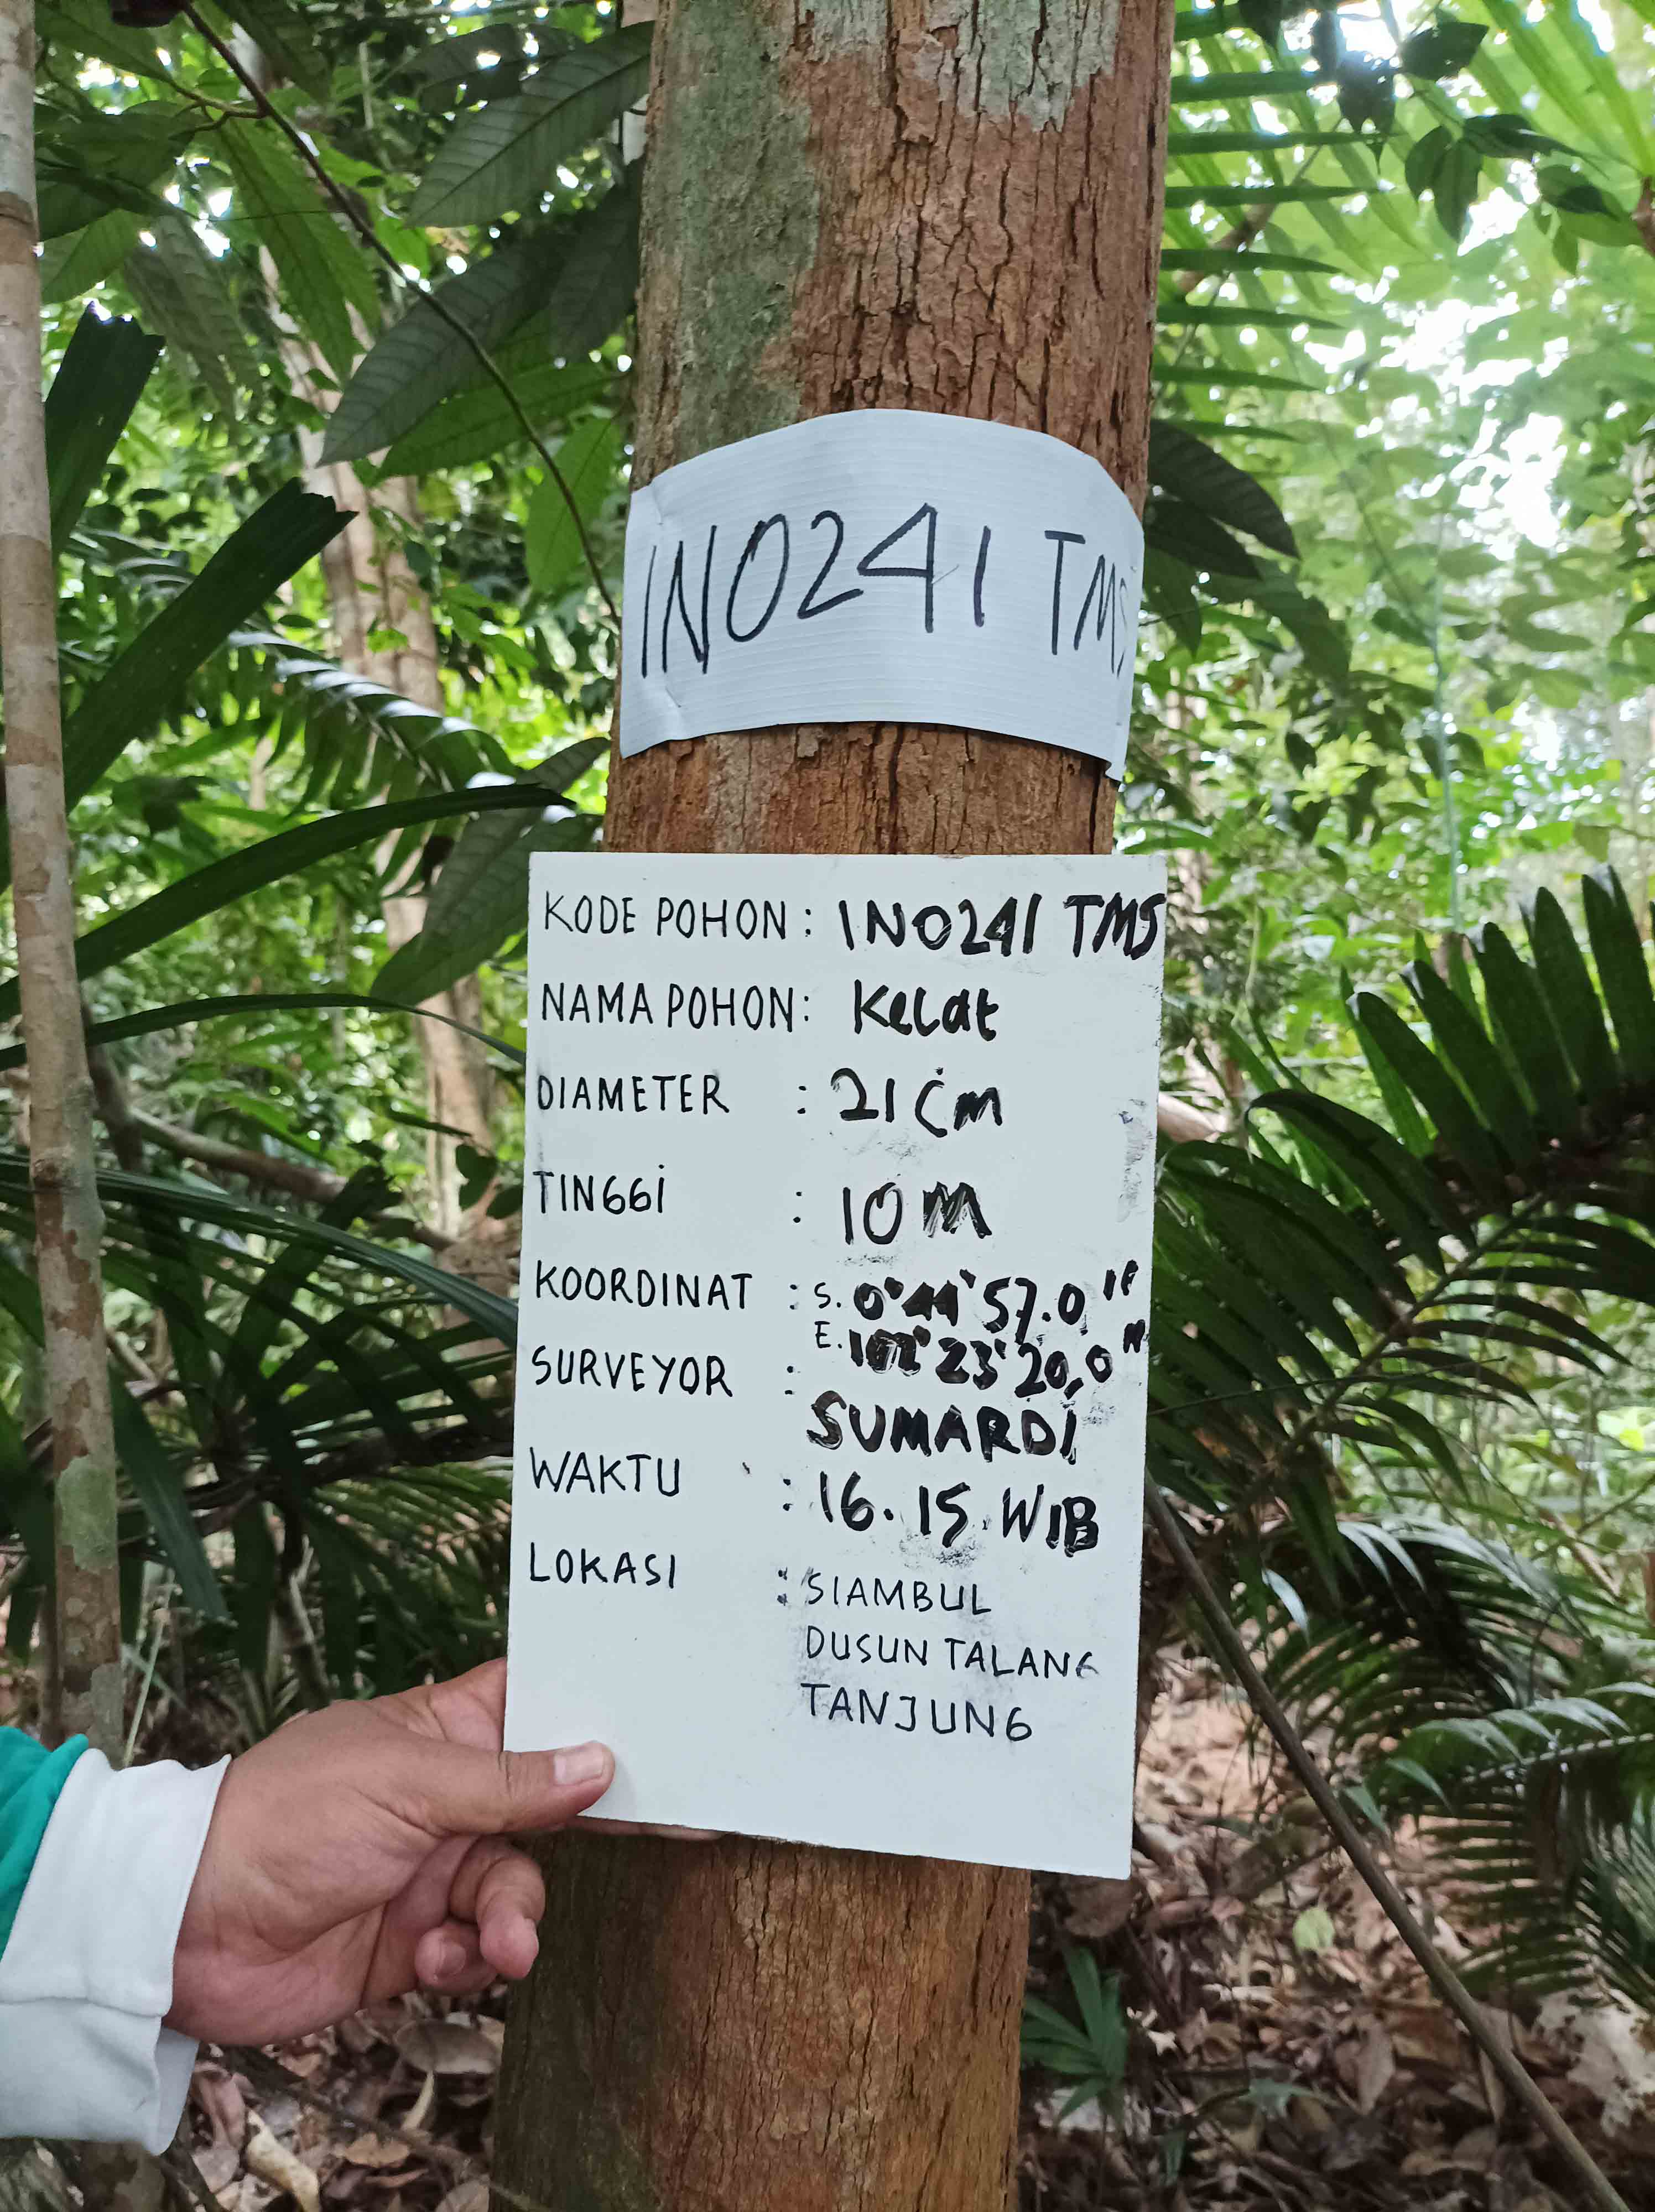 INO241 TMS
KODE POHON : INO241 TMS
NAMA POHON : Kelat
DIAMETER : 21 Cm
TINGGI : 10 M
KOORDINAT : S. 0°44'57.0"
E. 102°23'20,0"
SURVEYOR :
SUMARDI
WAKTU : 16.15 WIB
LOKASI : SIAMBUL
DUSUN TALANG
TANJUNG